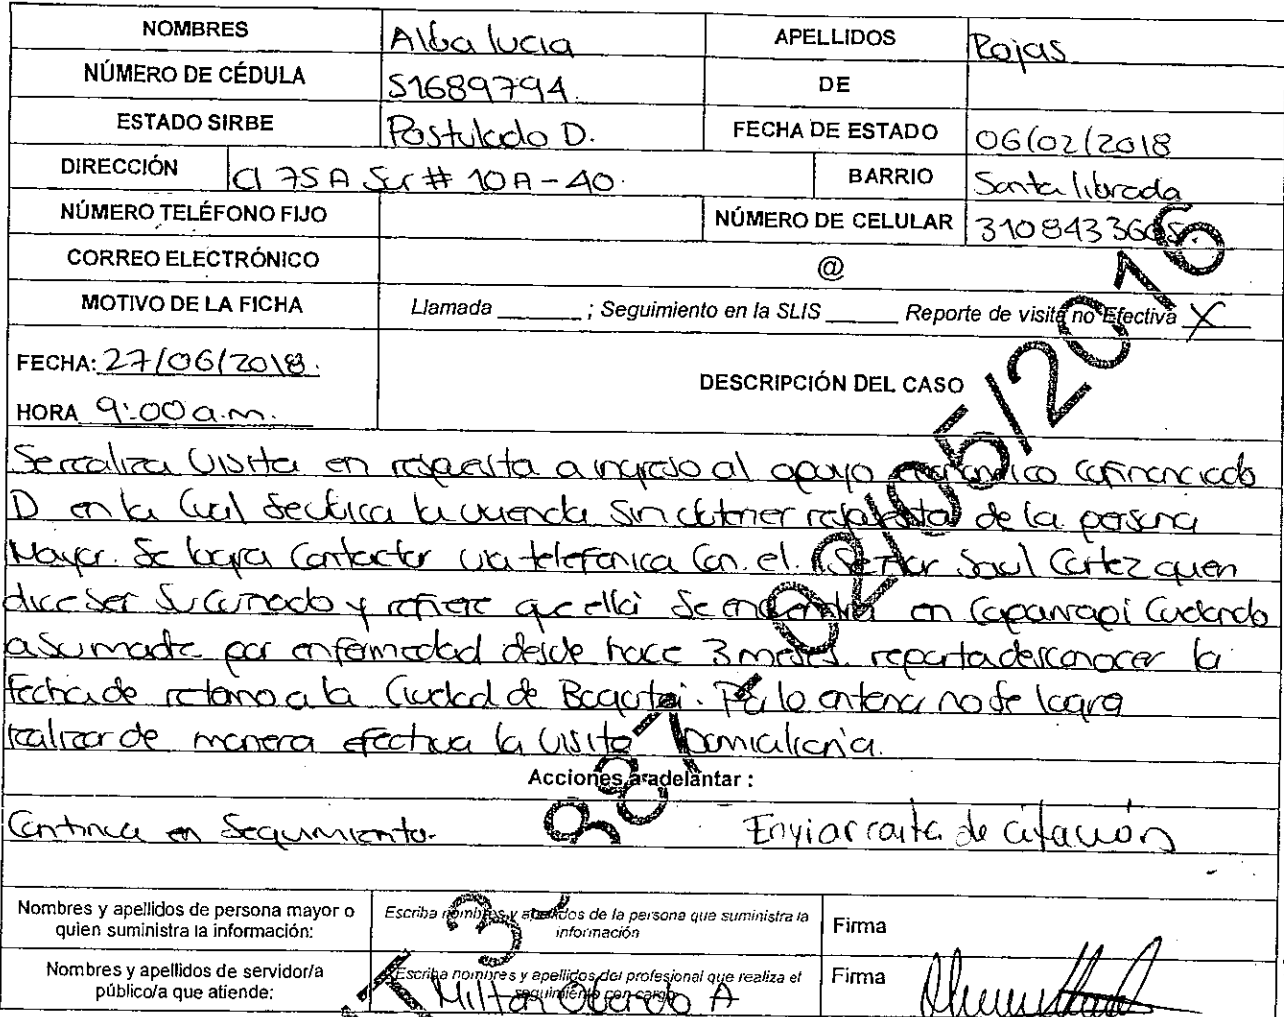 NOMBRES Alba lucia APELLIDOS Rojas
NÚMERO DE CÉDULA 51689794. DE
ESTADO SIRBE Postulado D. FECHA DE ESTADO 06/02/2018
DIRECCIÓN Cl 75 A Sur # 10 A - 40. BARRIO Santa librada
NÚMERO TELÉFONO FIJO NÚMERO DE CELULAR 3108433605.
CORREO ELECTRÓNICO @
MOTIVO DE LA FICHA Llamada ______ ; Seguimiento en la SLIS _____ Reporte de visita no Efectiva X
FECHA: 27/06/2018.
DESCRIPCIÓN DEL CASO
HORA 9:00 a.m.
Se realiza Visita en respuesta a ingreso al apoyo económico cofinanciado
D en la Cual se ubica la vivienda sin obtener respuesta de la persona
Mayor. Se logra Contactar via telefonica Con el Señor Saul Cortez quien
dice ser su Cuñado y refiere que ella se encuentra en Caparrapi Cuidando
a su madre por enfermedad desde hace 3 meses. reporta desconocer la
fecha de retorno a la Ciudad de Bogotá. Por lo anterior no se logra
realizar de manera efectiva la Visita Domiciliaria.
Acciones a adelantar :
Continua en Seguimiento. Enviar carta de citación
Nombres y apellidos de persona mayor o quien suministra la información: Escriba nombres y apellidos de la persona que suministra la información Firma
Nombres y apellidos de servidor/a público/a que atiende: Escriba nombres y apellidos del profesional que realiza el seguimiento con cargo Firma
Milton Obando A
02/05/2016